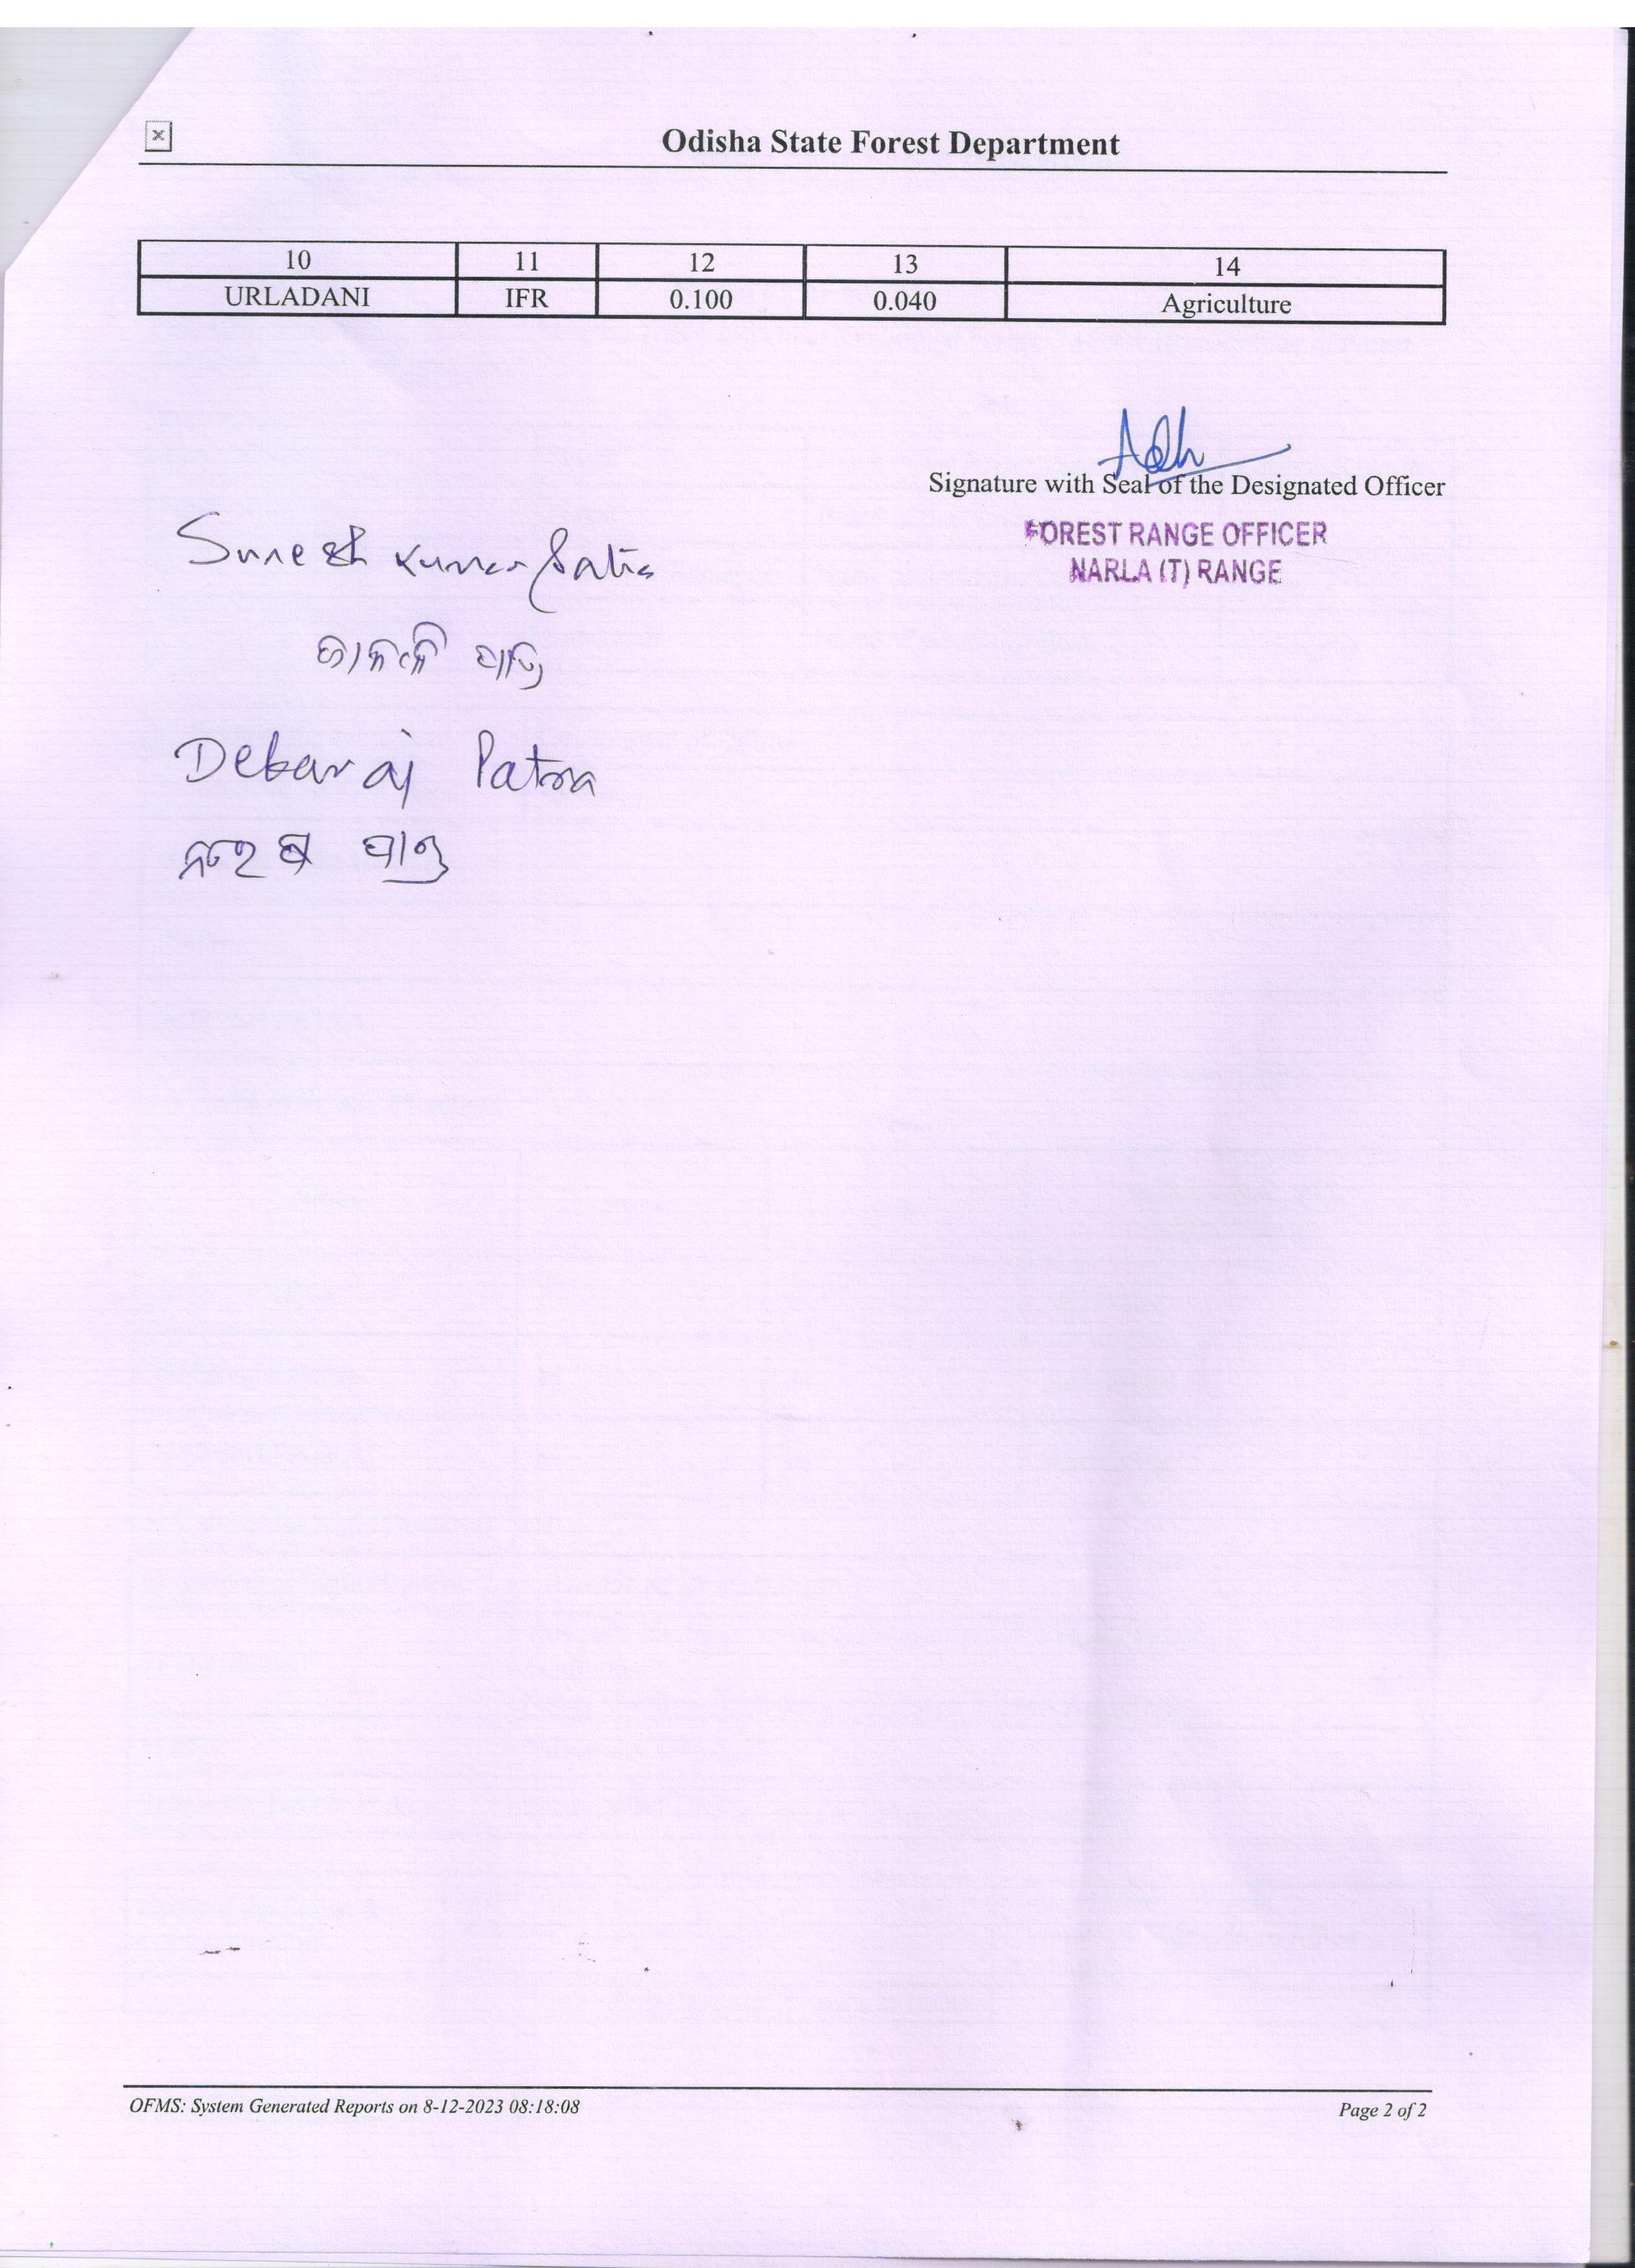 Odisha State Forest Department
10 11 12 13 14
URLADANI IFR 0.100 0.040 Agriculture
Signature with Seal of the Designated Officer
FOREST RANGE OFFICER
NARLA (T) RANGE
Suresh Kumar Patra
ଜାନକୀ ପାତ୍ର
Debaraj Patra
OFMS: System Generated Reports on 8-12-2023 08:18:08
Page 2 of 2